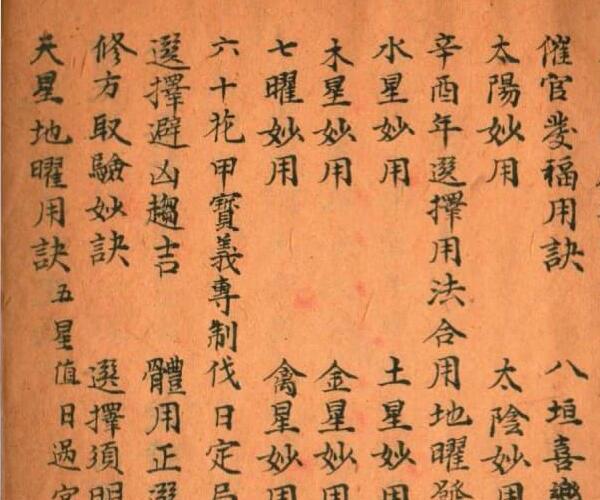 催官發福用訣 八垣喜樂
太陽妙用 太陰妙用
辛酉年選擇用法合用地曜發
水星妙用 土星妙用
木星妙用 金星妙用
七曜妙用 禽星妙用
六十花甲寶義專制伐日定局
選擇避凶趨吉 體用正選
修方取驗妙訣 選擇須明
天星地曜用訣 五星值日過宮